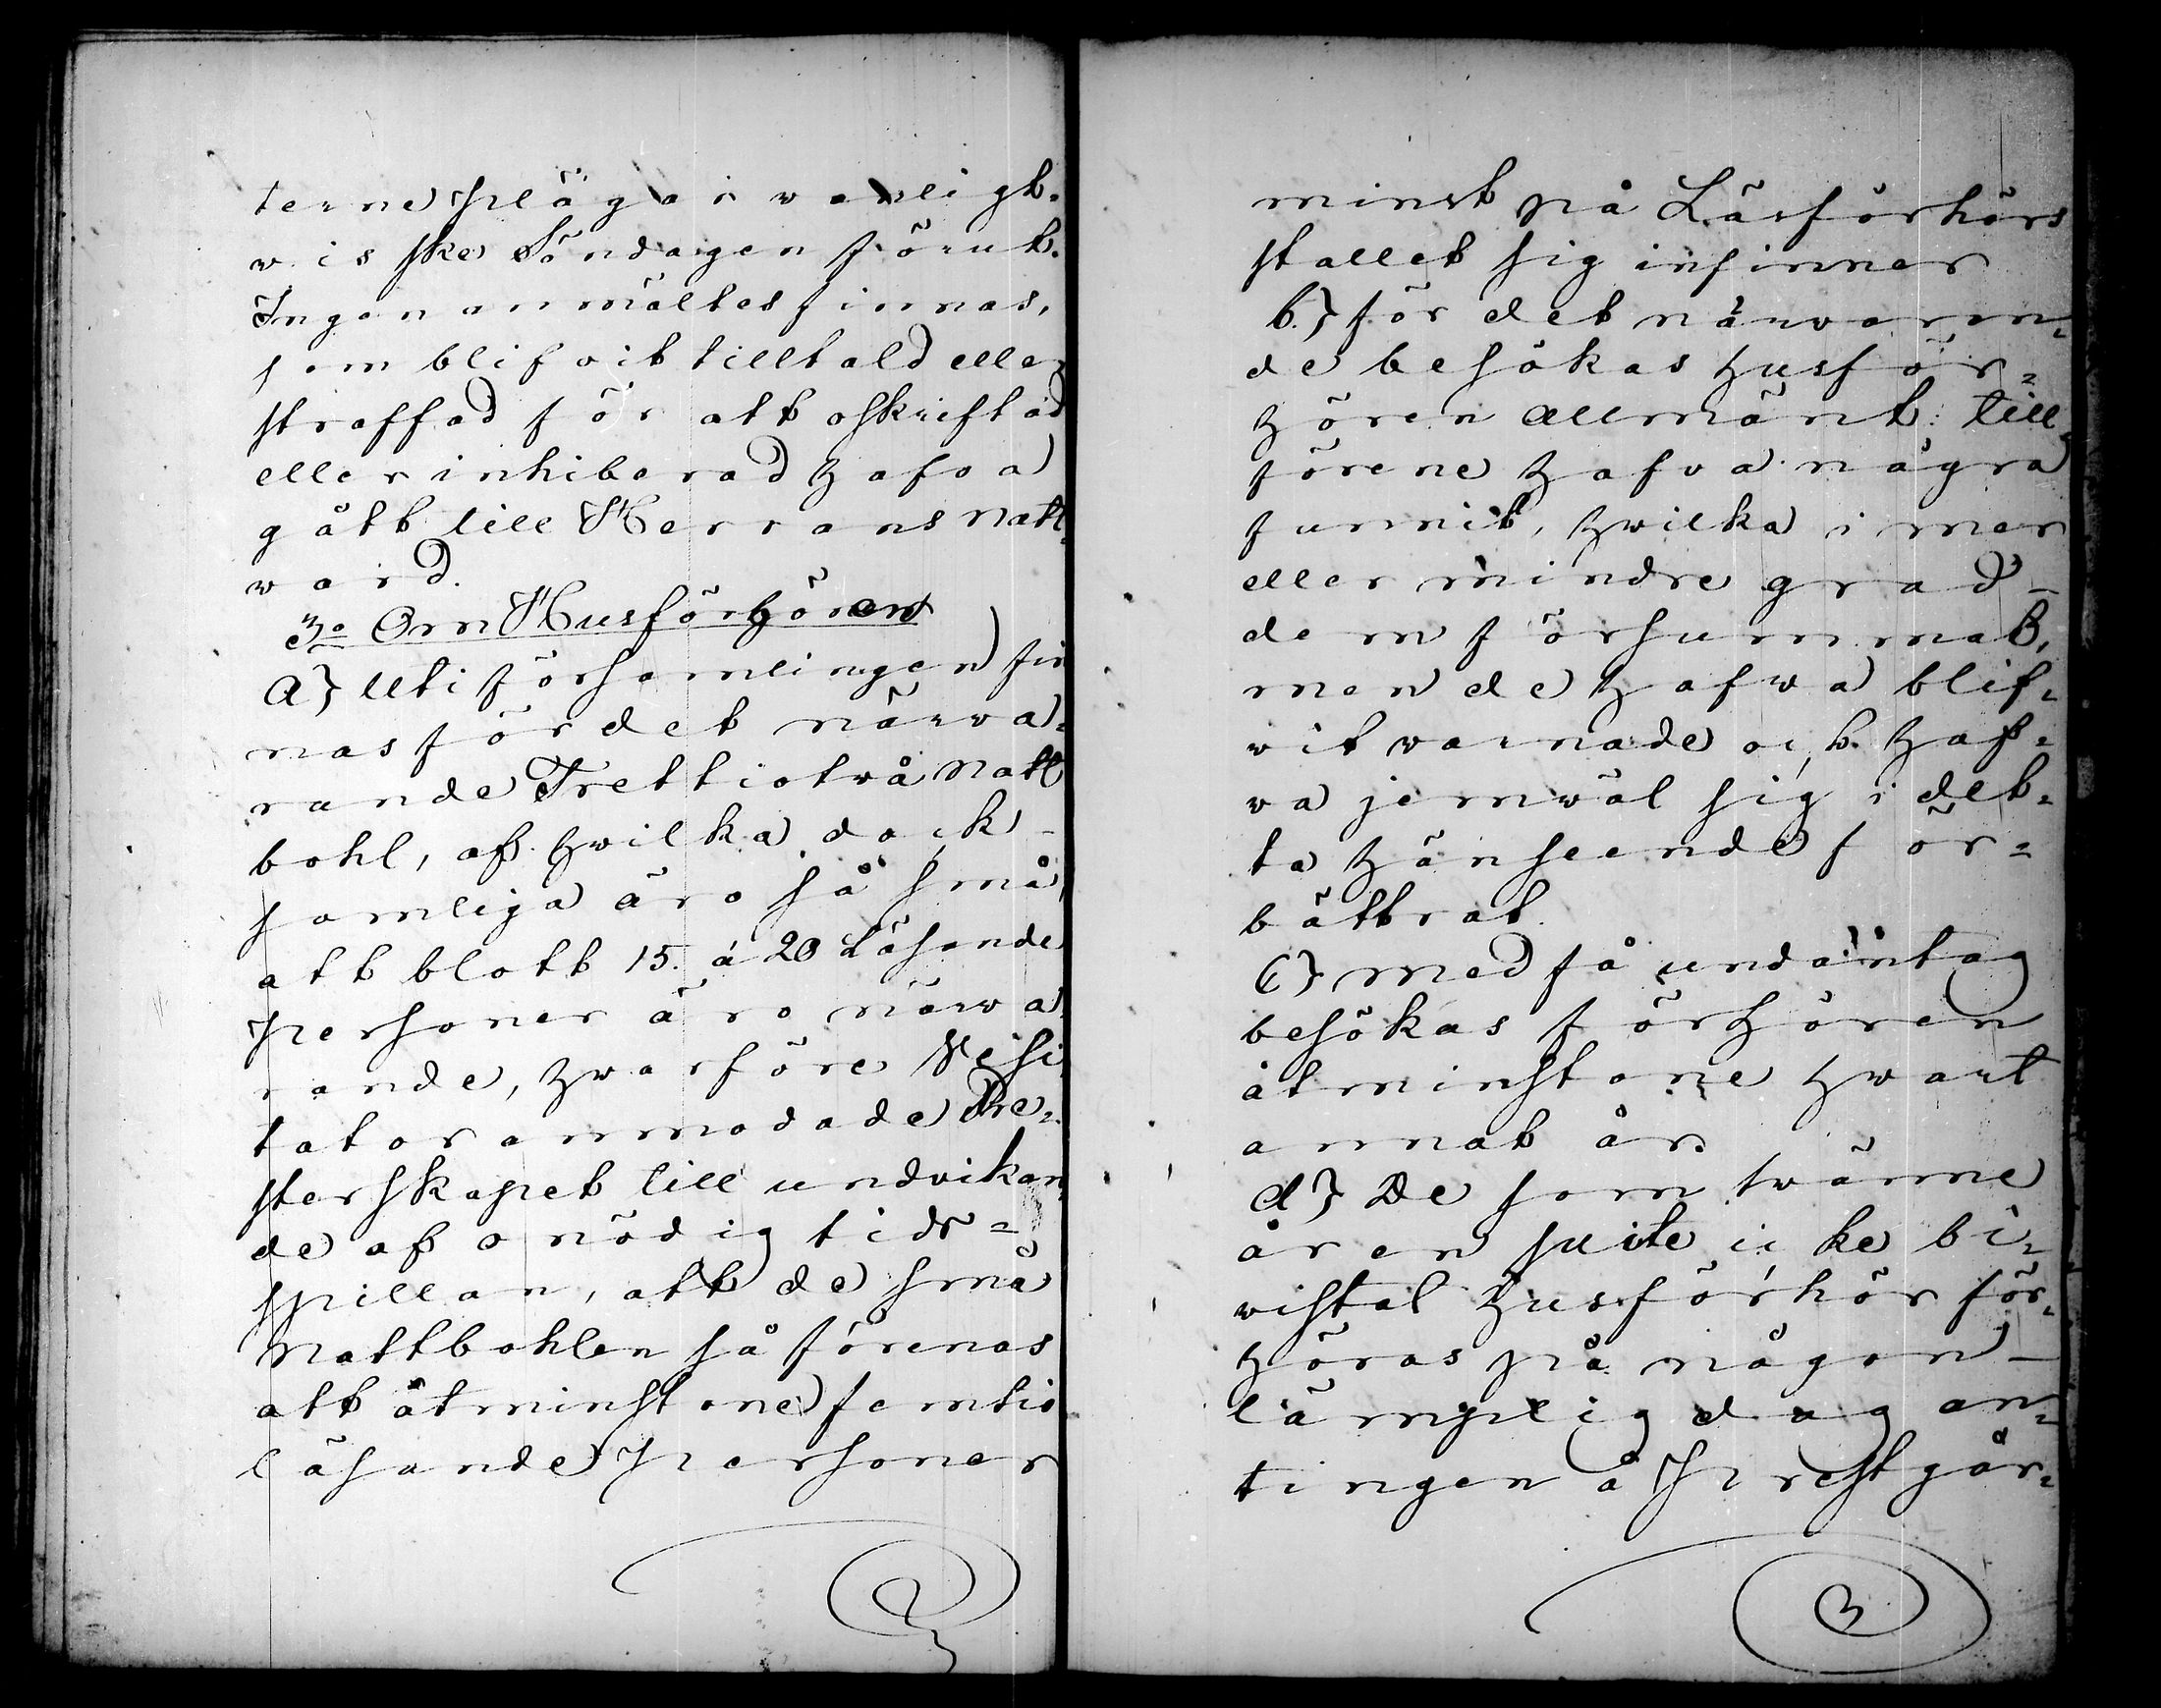 terne plägar vanligt.
wis ske Söndagen förut.
Ingen anmältes finnas,
som blifvit tilltald eller
straffad för att oskriftad
eller inhiberad hafva
gått till Herrans natt=
ward.
3o Om Husförhören
a) Uti församlingen fin
nas för det närva=
rande Trettiotvå Natt
bohl, af hvilka dock -
somliga äro så små,
att blott 15. à 20 Läsande
personer äro närva
rande, hvarföre Visi
tator anmodade Pre=
sterskapet till undvikan=
de af onödig tids=
spillan, att de små
Nattbohlen så förenas
att åtminstone femtio
läsande personer
minst på Läsförhörs
stället sig infinner
b.) för det närvaran=
de besökas husför=
hören allmänt: till
förene hafva några
funnit, hwilka i mer
eller mindre grad -
dem försummat,
men de hafwa blif=
wit warnade och haf=
va jemwäl sig i det=
ta hänseende för=
bättrat.
C) med få undantag
besökas förhören
åtminstone hwart
annat år.
d) De som tvänne
åren suite icke bi=
vistat husförhör för=
höras på någon -
lämplig dag an=
tingen å Prestgår=